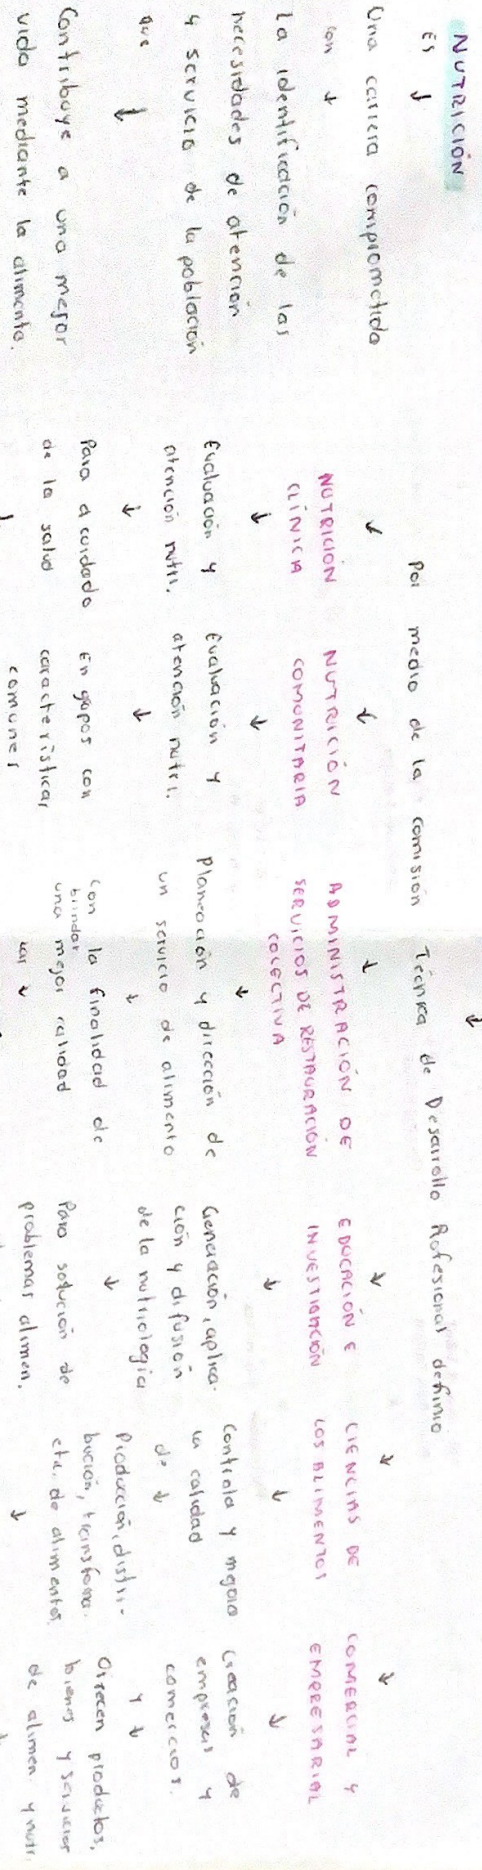 NUTRICIÓN
Es
Una carrera comprometida
con
la identificación de las
necesidades de atención
y servicio de la población
que
Contribuye a una mejor
vida mediante la alimenta.
Por medio de la comisión Técnica de Desarrollo Profesional definio
NUTRICIÓN
CLÍNICA
Evaluación y
atención nutri.
Para el cuidado
de la salud
NUTRICIÓN
COMUNITARIA
Evaluación y
atención nutri.
En grupos con
características
comunes
ADMINISTRACIÓN DE
SERVICIOS DE RESTAURACIÓN
COLECTIVA
Planeación y dirección de
un servicio de alimento
Con la finalidad de
brindar
una mejor calidad
EDUCACIÓN E
INVESTIGACIÓN
Generación, aplica-
ción y difusión
de la nutriología
Para solución de
problemas alimen.
CIENCIAS DE
LOS ALIMENTOS
Controla y mejora
la calidad
de
Producción, distri-
bución, transforma.
etc. de alimentos.
COMERCIAL Y
EMPRESARIAL
Creación de
empresas y
comercios.
y
Ofrecen productos,
bienes y servicios
de alimen. y nutri.